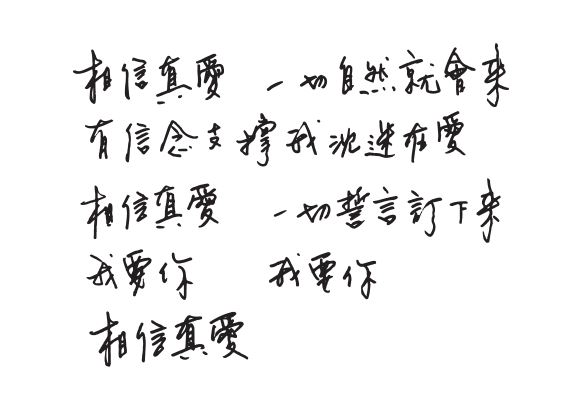 相信真愛 一切自然就會來
有信念支撐我沈迷在愛
相信真愛 一切誓言訂下來
我要你 我要你
相信真愛